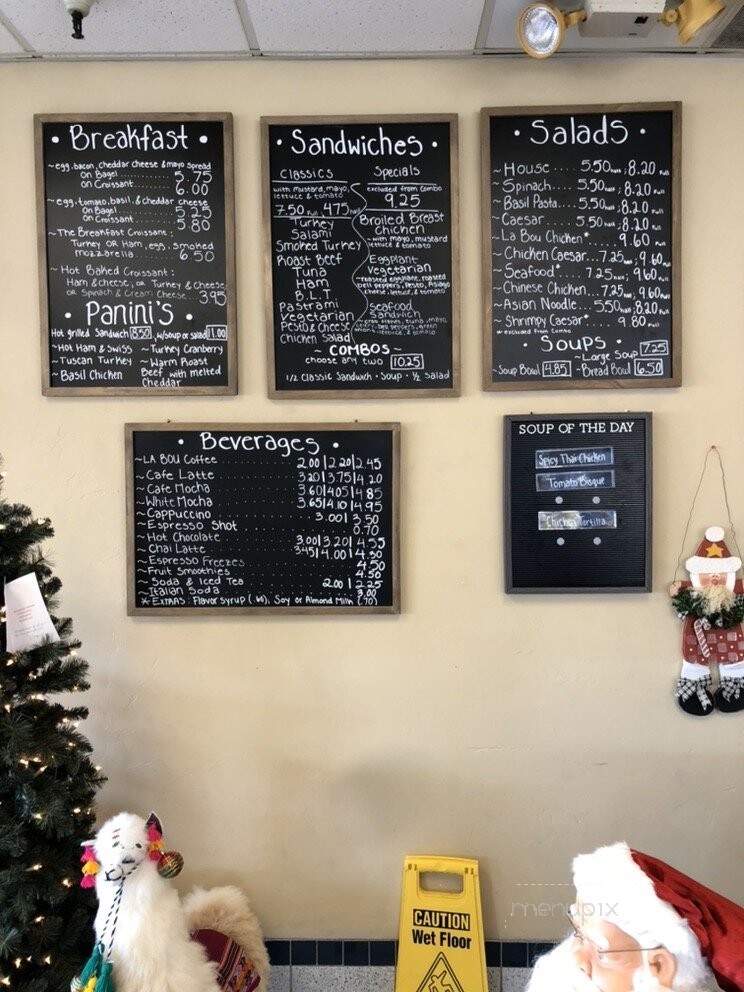 • Breakfast •
~egg, bacon, cheddar cheese & mayo spread
on Bagel ........... 5.75
on Croissant ........... 6.00
~egg, tomato, basil, & cheddar cheese
on Bagel ........... 5.25
on Croissant ........... 5.80
~The Breakfast Croissant:
Turkey OR Ham, egg, smoked
mozzarella ........... 6.50
~Hot Baked Croissant:
Ham & cheese, OR Turkey & Cheese
OR Spinach & Cream Cheese ... 3.95
• Panini's •
Hot grilled Sandwich 8.50 w/soup or salad 11.00
~Hot Ham & Swiss
~Tuscan Turkey
~Basil Chicken
~Turkey Cranberry
~Warm Roast
Beef with melted
Cheddar
• Sandwiches •
Classics
with mustard, mayo,
lettuce & tomato
7.50 Full 4.75 half
Turkey
Salami
Smoked Turkey
Roast Beef
Tuna
Ham
B.L.T
Pastrami
Vegetarian
Pesto & Cheese
Chicken Salad
Specials
excluded from combo
9.25
Broiled Breast
Chicken
~with mayo, mustard
lettuce & tomato
Eggplant
Vegetarian
~roasted eggplant, roasted
bell peppers, Pesto, Asiago
cheese, lettuce, & tomato
Seafood
Sandwich
~ COMBOS ~
choose any two 10.25
1/2 Classic Sandwich • Soup • 1/2 Salad
• Salads •
~House .... 5.50 half 8.20 Full
~Spinach .... 5.50 half 8.20 Full
~Basil Pasta .... 5.50 half 8.20 Full
~Caesar .... 5.50 half 8.20 Full
~La Bou Chicken* .... 9.60 Full
~Chicken Caesar... 7.25 half 9.60 Full
~Seafood* .... 7.25 half 9.60 Full
~Chinese Chicken.... 7.25 half 9.60 Full
~Asian Noodle.... 5.50 half 8.20 Full
~Shrimpy Caesar* .... 9.80 Full
* excluded from combo
• Soups •
~Large Soup 7.25
~Soup Bowl 4.85 ~Bread Bowl 6.50
• Beverages •
~LA BOU Coffee 2.00|2.20|2.45
~Cafe Latte 3.20|3.75|4.20
~Cafe Mocha 3.60|4.05|4.85
~White Mocha 3.65|4.10|4.95
~Cappuccino 3.00|3.50
~Espresso Shot 0.70
~Hot Chocolate 3.00|3.20|4.55
~Chai Latte 3.45|4.00|4.50
~Espresso Freezes 4.50
~Fruit Smoothies 4.50
~Soda & Iced Tea 2.00|2.25
~Italian Soda 3.00
*EXTRAS: Flavor syrup (.60), Soy or Almond Milk (.70)
SOUP OF THE DAY
Spicy Thai Chicken
Tomato Bisque
Chicken Tortilla
CAUTION
Wet Floor
menupix